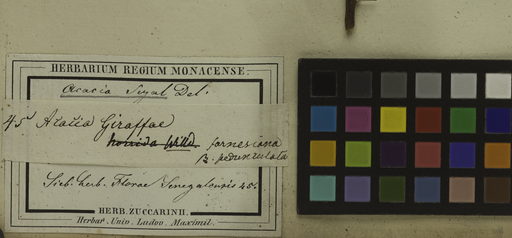 HERBARIUM REGIUM MONACENSE.
Acacia Seyal Del.
45 Acacia Giraffae
horrida Willd. farnesiana
B. pedunculata
Sieb. herb. Florae Senegalensis 45.
HERB. ZUCCARINII.
Herbar. Univ. Ludov. Maximil.